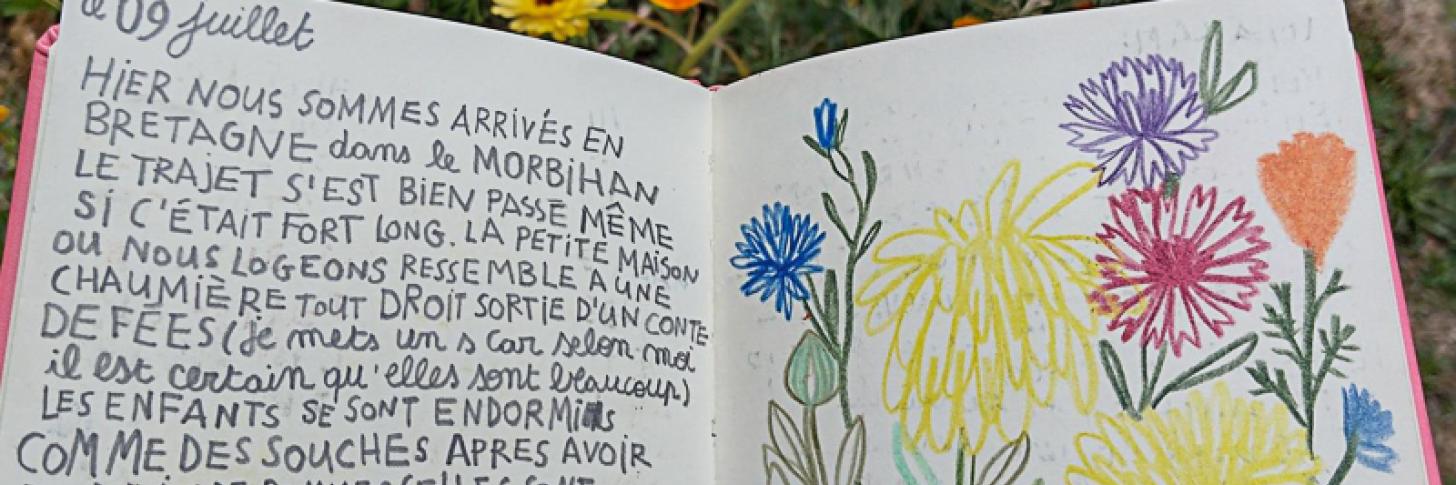 09 juillet
HIER NOUS SOMMES ARRIVÉS EN
BRETAGNE dans le MORBIHAN
LE TRAJET S'EST BIEN PASSÉ MÊME
SI C'ÉTAIT FORT LONG. LA PETITE MAISON
OU NOUS LOGEONS RESSEMBLE A UNE
CHAUMIÈRE TOUT DROIT SORTIE D'UN CONTE
DE FÉES (je mets un s car selon moi
il est certain qu'elles sont beaucoup)
LES ENFANTS SE SONT ENDORMIS
COMME DES SOUCHES APRES AVOIR